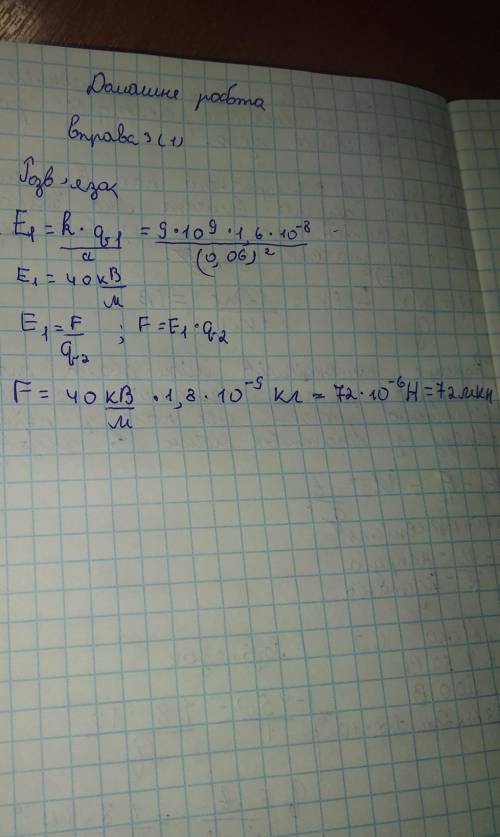 Домашнє робота
Вправа 3(1)
Розв'язок
E₁ = k · q₁ / r = 9·10⁹·1,6·10⁻⁸ / (0,06)²
E₁ = 40 кВ/м
E₁ = F/q₂ ; F = E₁·q₂
F = 40 кВ/м · 1,8·10⁻⁹ кл = 72·10⁻⁶ Н = 72мкн